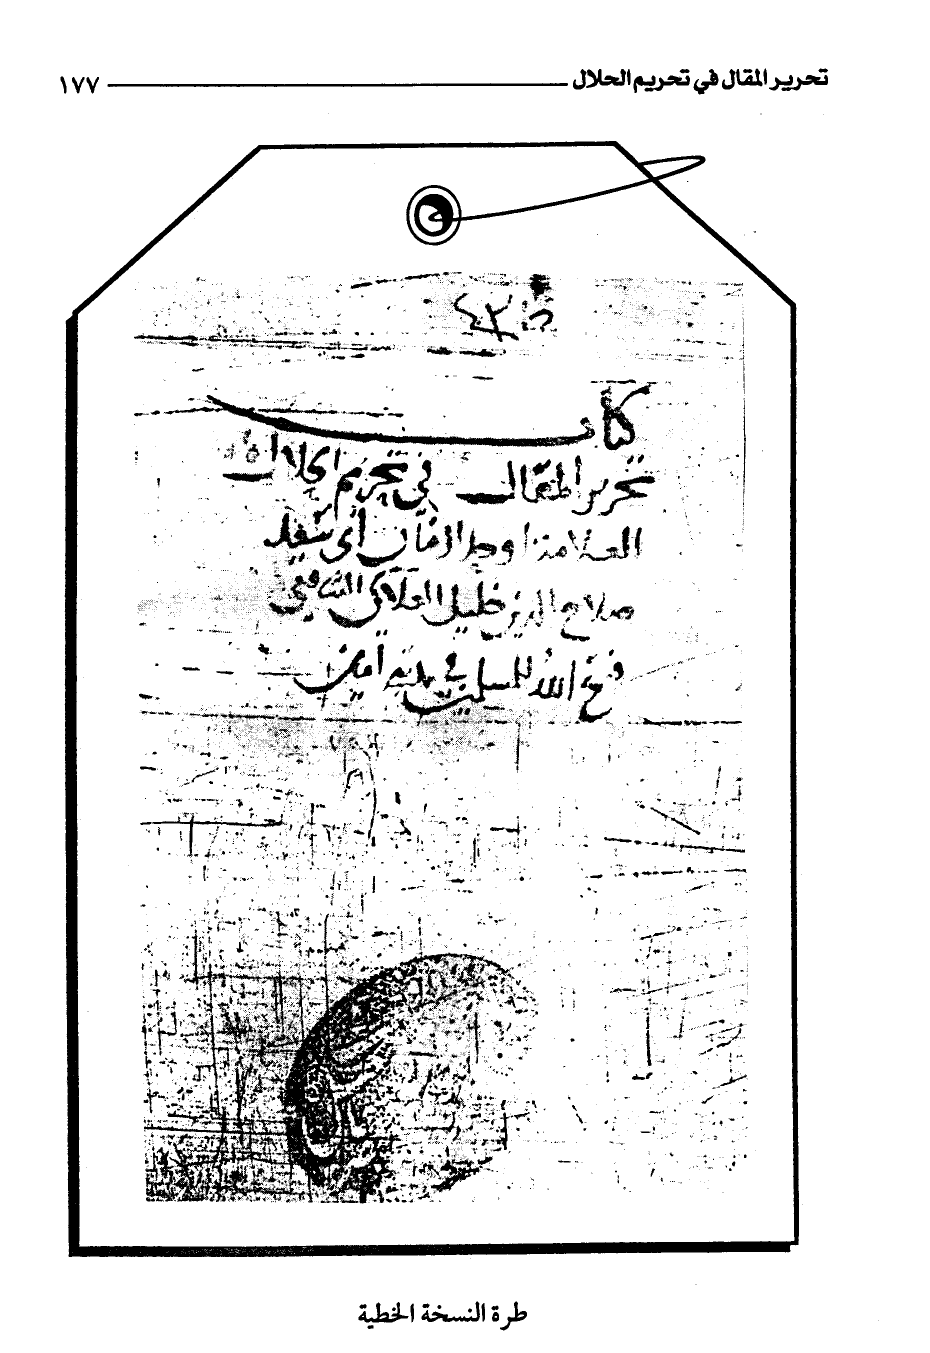 تحرير المقال في تحريم الحلال ١٧٧
كتاب
تحرير المقال في تحريم الحلال
العلامة أوحد الزمان أبي سعيد
صلاح الدين خليل العلائي الشافعي
فسح الله للمسلمين في مدته آمين
طرة النسخة الخطية